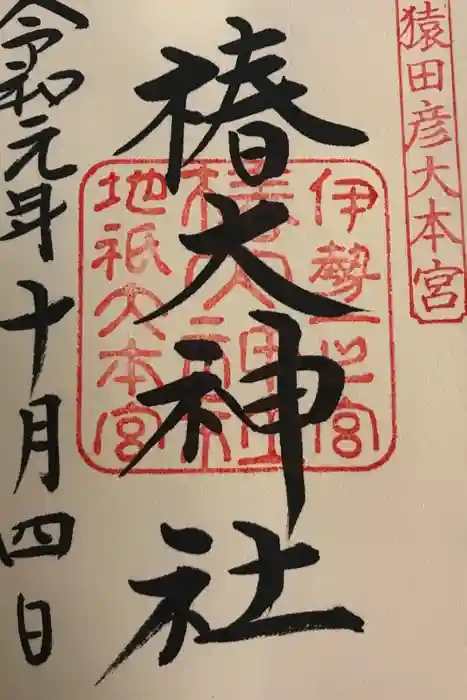 猿田彦大本宮
椿大神社
伊勢一之宮
椿大神社
地祇大本宮
令和元年十月四日